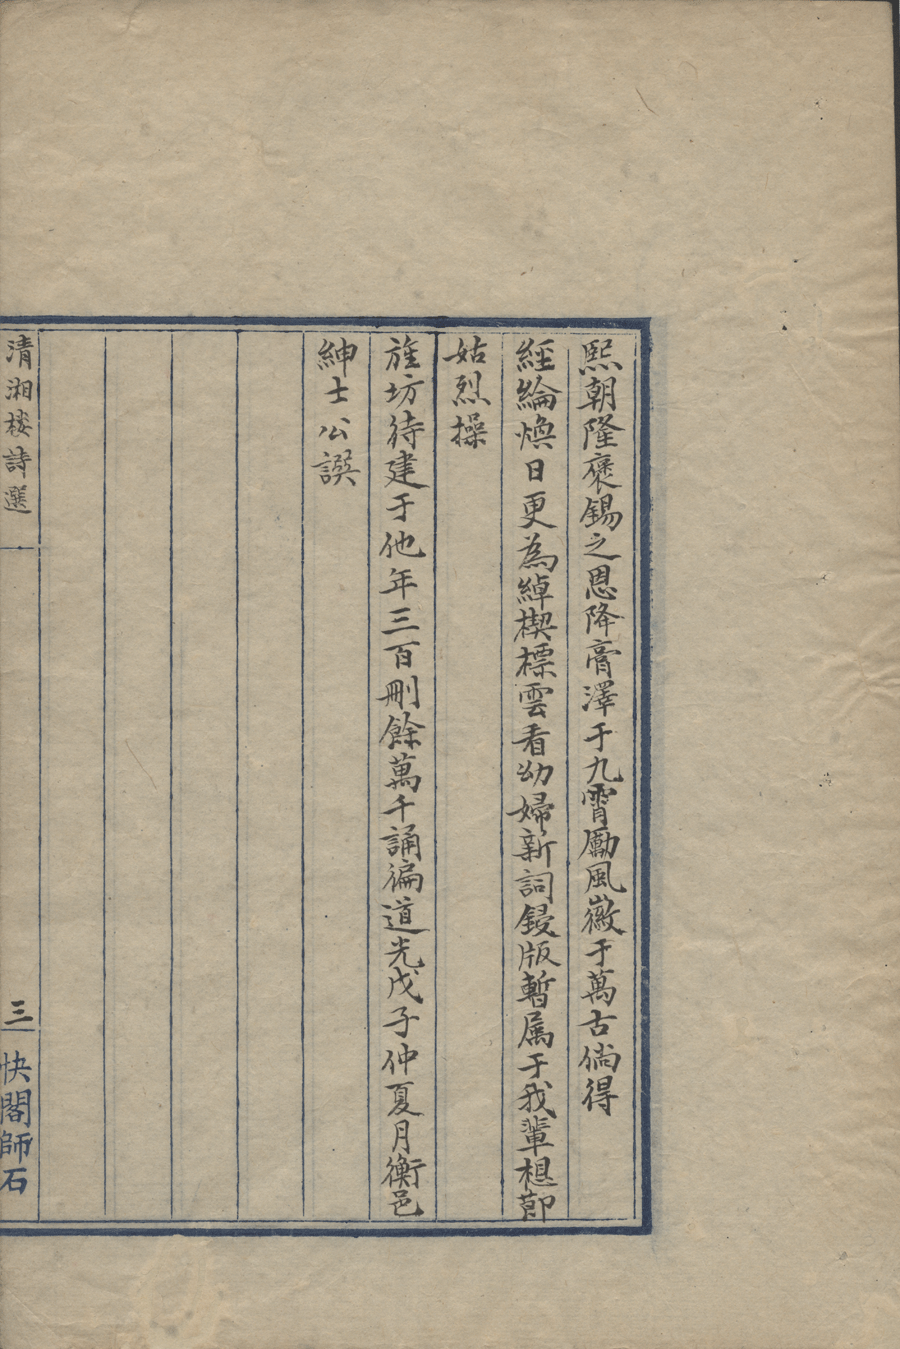 熙朝隆褒錫之恩降膏澤于九霄勵風徽于萬古倘得
經綸煥日更為綽楔標雲看幼婦新詞鋟版暫属于我輩想節
姑烈操
旌坊待建于他年三百刪餘萬千誦徧道光戊子仲夏月衡邑
紳士公譔
清湘楼詩選
三
快閣師石